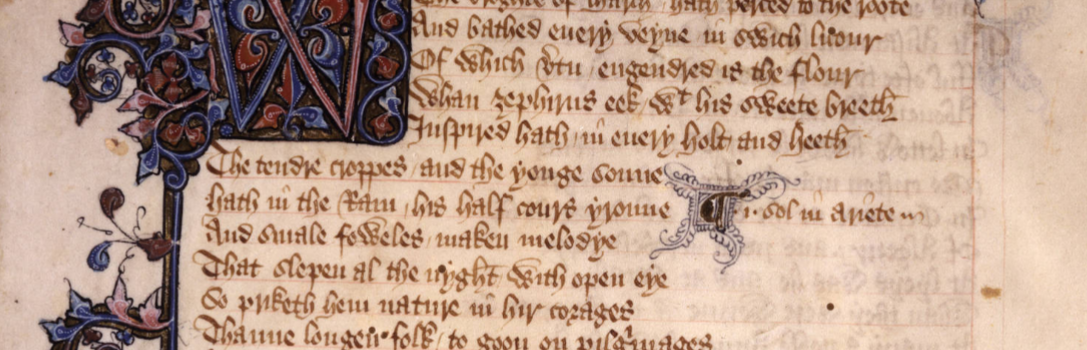 The droghte of March / hath perced to the roote
And bathed euery veyne in swich licour
Of which vtu / engendred is the flour
Whan zephirus eek wt his sweete breeth
Inspired hath / in euery holt and heeth
The tendre croppes / and the yonge sonne
hath in the Ram / his half cours yronne
.i. sol in ariete
And smale foweles / maken melodye
That slepen al the nyght with open eye
So priketh hem nature in hir corages
Thanne longen folk / to goon on pilgrimages